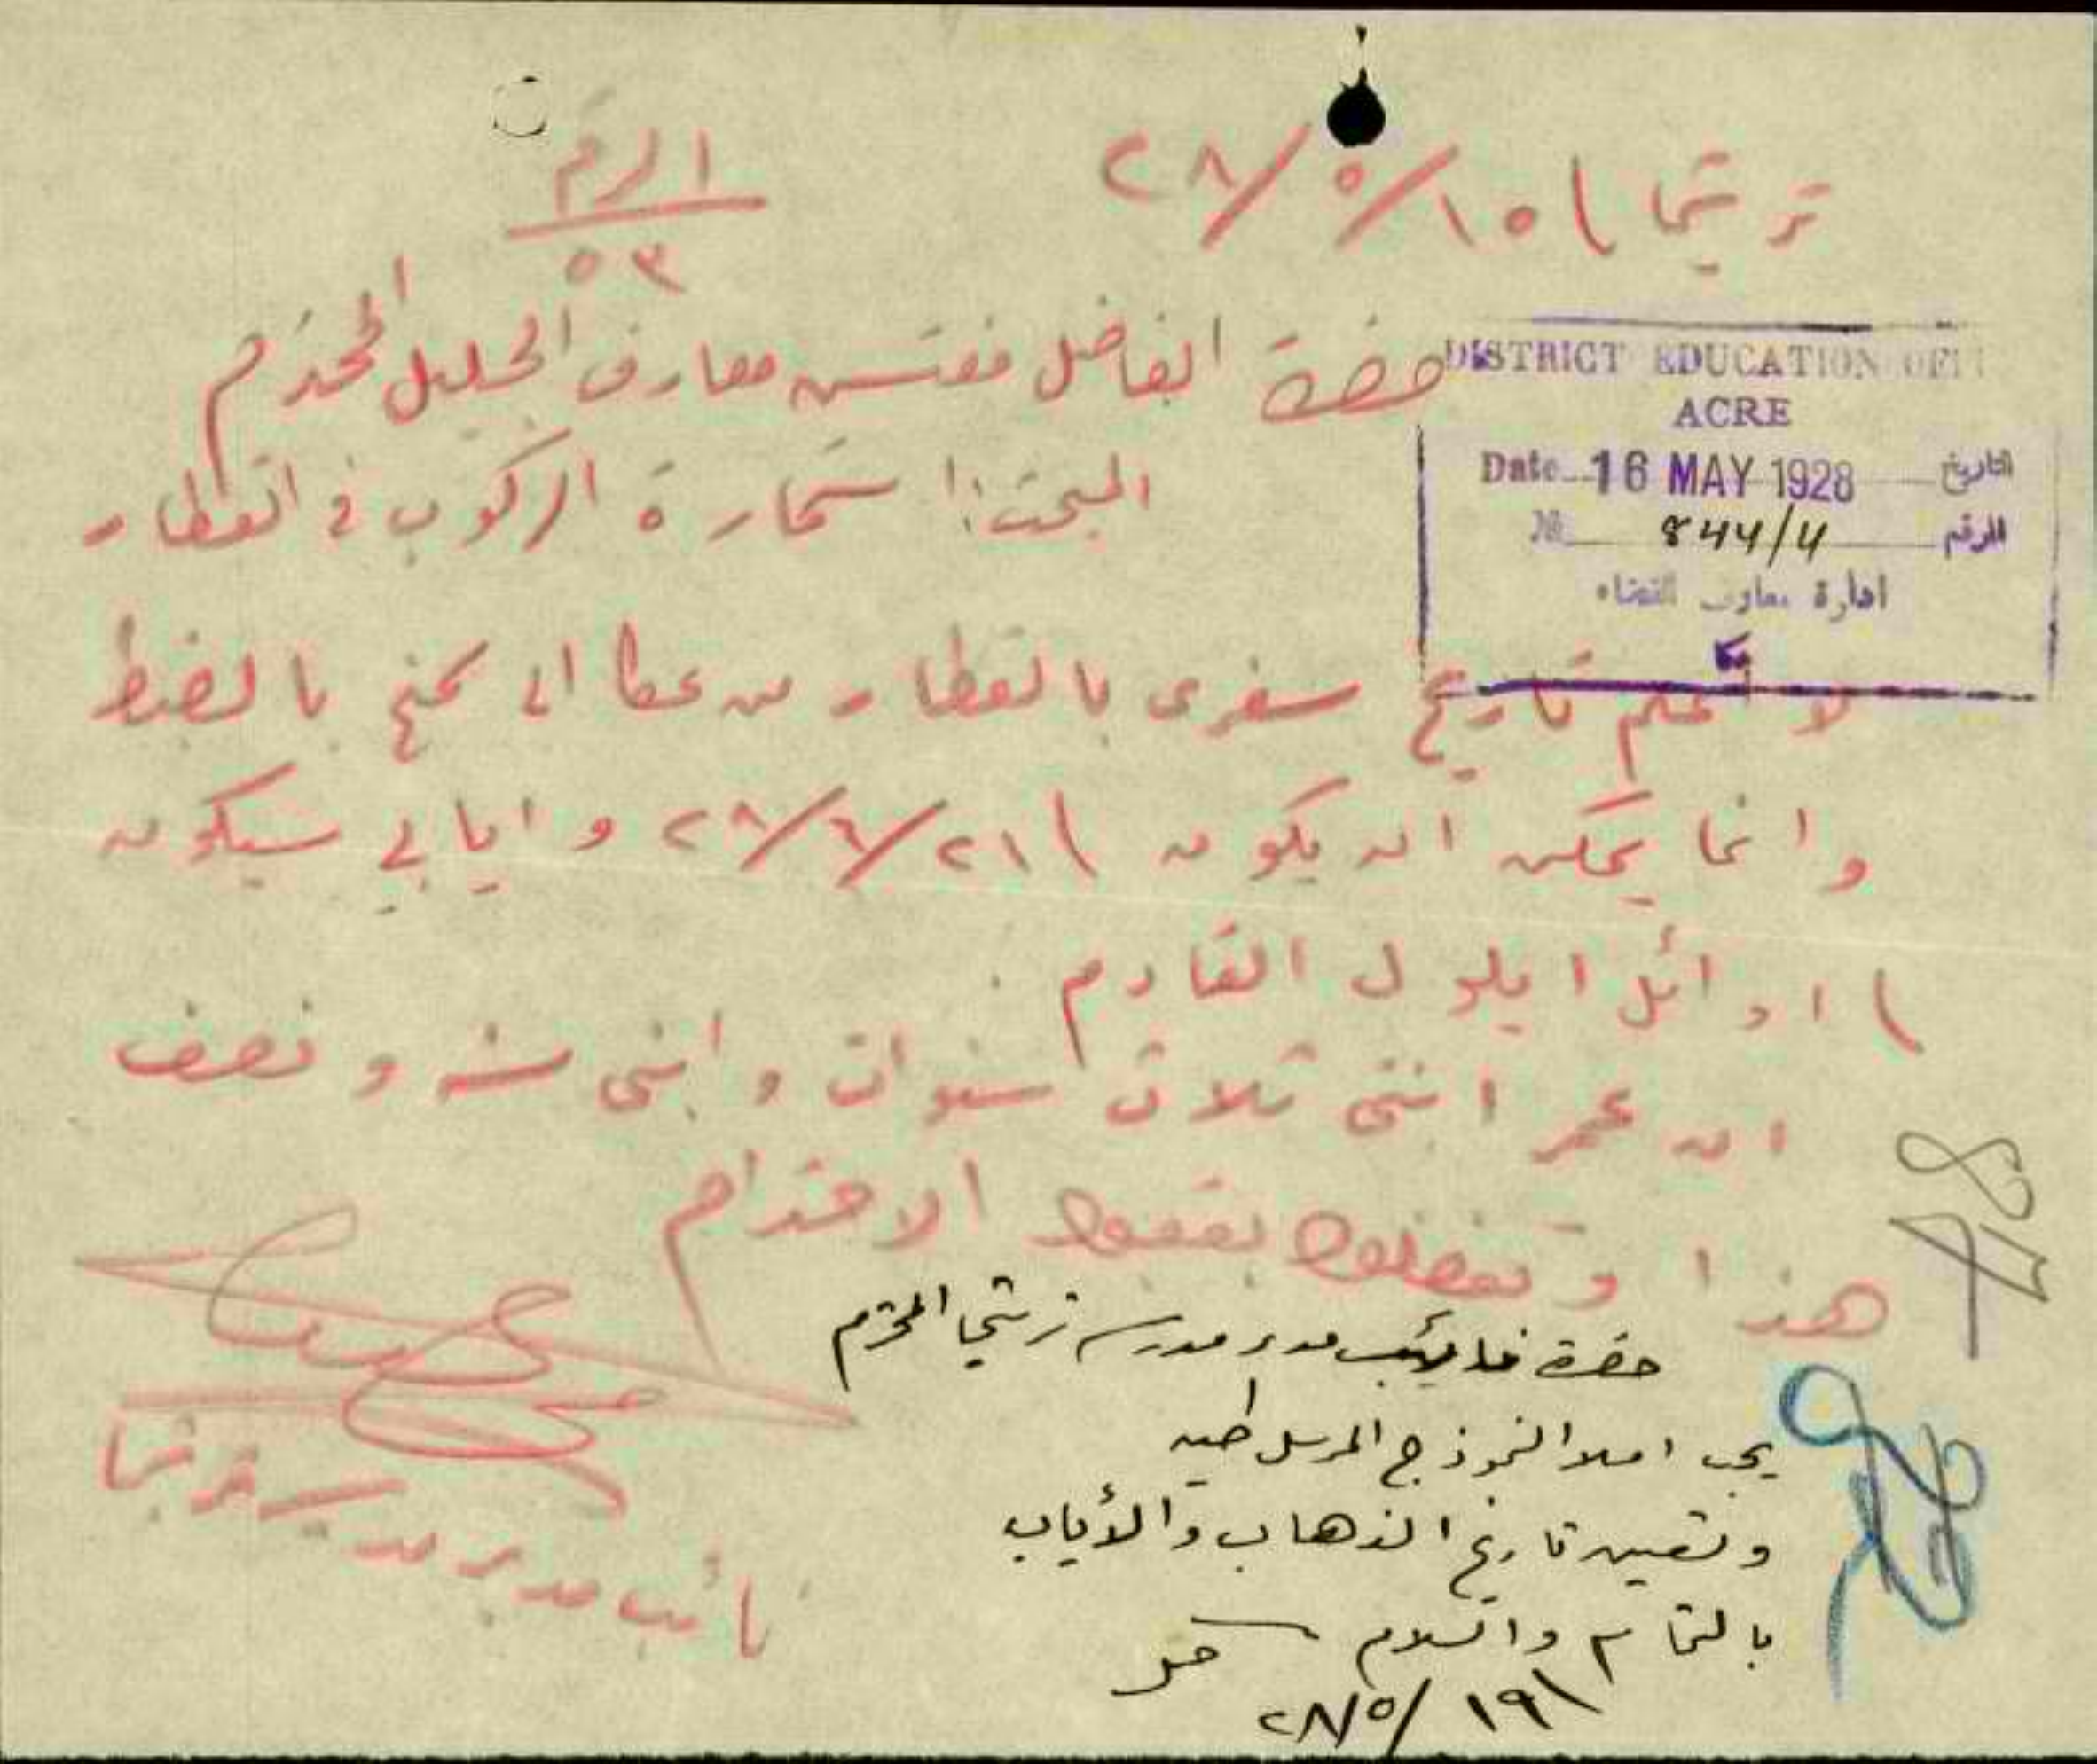 ترشيحا ١٥/٥/٢٨
الرقم
٥٣
حضرة الفاضل مفتش معارف الجليل المحترم
المبحث: استمارة الركوب في القطار
DISTRICT EDUCATION OFFI
ACRE
Date 16 MAY 1928 التاريخ
No 844/4 الرقم
ادارة معارف القضاء
عكا
لا اعلم تاريخ سفري بالقطار من عكا الى بالضبط
وانما يمكن ان يكون ٢١/٦/٢٨ و ايابي سيكون
اوائل ايلول القادم
ان عمر ابنتي ثلاث سنوات و ابني سنة و نصف
هذا و تفضلوا بقبول الاحترام
نائب مدير مدرسة ترشيحا
حضرة نائب مدير مدرسة ترشيحا المحترم
يجب املا النموذج المرسل طيه
وتعيين تاريخ الذهاب والأياب
بالتمام والسلام
١٩/٥/٢٨